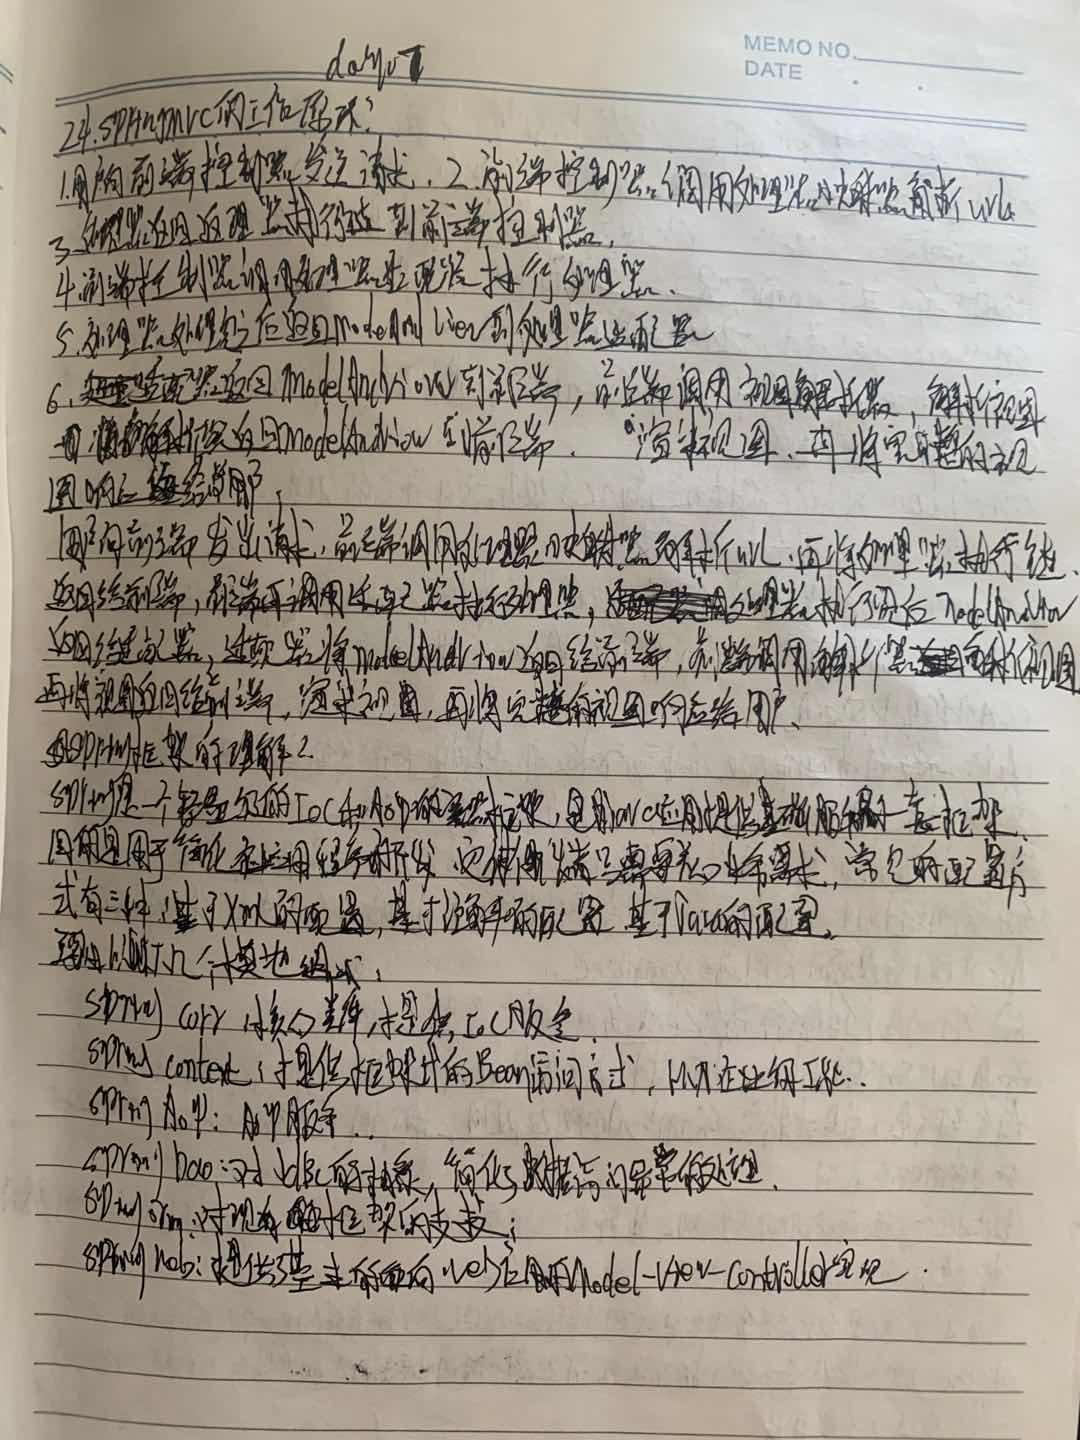 MEMO NO.
DATE
day
24.springmvc的工作原理？
1.用户向前端控制器发送请求．2.前端控制器调用处理器映射器解析url
3.处理器返回处理器执行链到前端控制器．
4.前端控制器调用处理器适配器执行处理器．
5.处理器处理完后返回ModelAndView到处理器适配器
6.适配器返回ModelAndView到前端，前端调用视图解析器，解析视图
返回ModelAndView到前端．渲染视图．再将完整的视
图响应给用户．
用户向前端发出请求，前端调用处理器映射器解析url．再将处理器执行链
返回给前端，前端再调用适配器执行处理器，处理器执行完后ModelAndView
返回给适配器，适配器将ModelAndView返回给前端，前端调用解析器解析视图
再将视图返回给前端，渲染视图，再将完整的视图响应给用户．
spring框架的理解？
spring是一个轻量级的IoC和AOP的容器框架，是为Java应用提供基础服务的一套框架．
目的是用于简化应用程序的开发 它使得开发者只需要关心业务需求，常见的配置方
式有三种：基于XML的配置，基于注解的配置 基于Java的配置．
主要由以下几个模块组成：
spring core：核心类库，提供IoC服务
spring context：提供框架式的Bean访问方式，
spring AOP：AOP服务．
spring Dao：对JDBC的抽象，简化了数据访问异常的处理．
spring orm：对现有的框架的支持；
spring web：提供了基本的面向web应用Model-View-Controller实现．